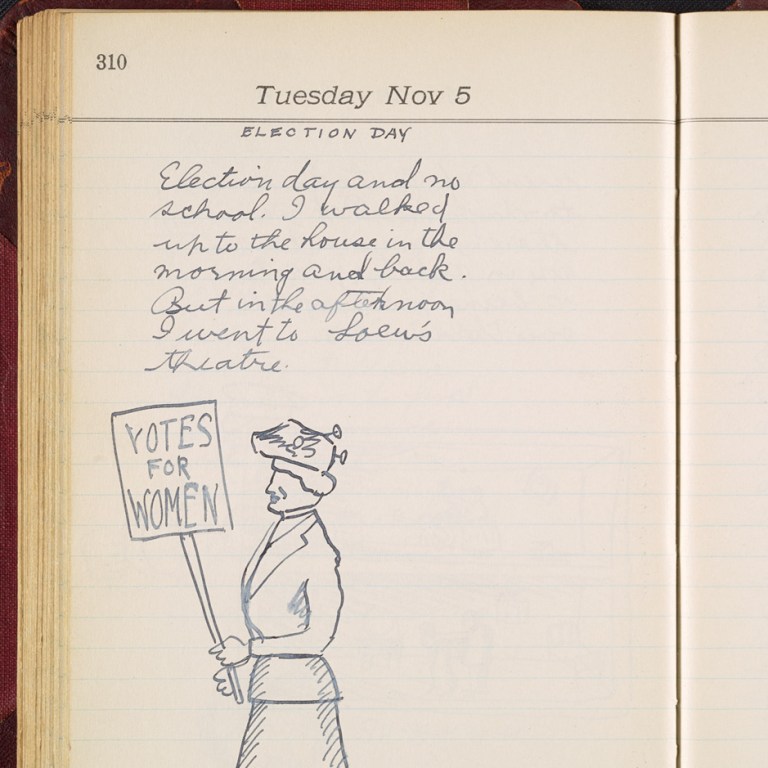 310
Tuesday Nov 5
ELECTION DAY
Election day and no
school. I walked
up to the house in the
morning and back.
But in the afternoon
I went to Loew's
theatre.
VOTES
FOR
WOMEN